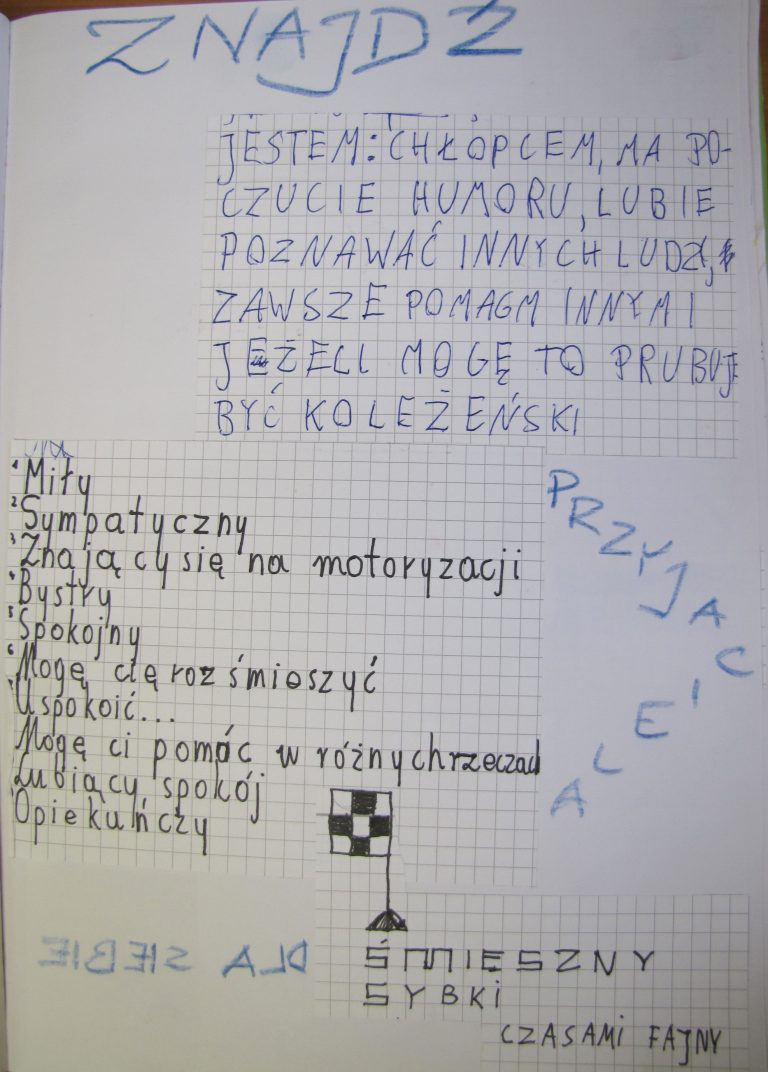 ZNAJDŹ
JESTEM: CHŁOPCEM, MA PO-
CZUCIE HUMORU, LUBIE
POZNAWAĆ INNYCH LUDZI,
ZAWSZE POMAGM INNYMI
JEŻELI MOGĘ TO PRUBUJE
BYĆ KOLEŻEŃSKI
1 Miły
2 Sympatyczny
3 Znający się na motoryzacji
4 Bystry
5 Spokojny
6 Mogę cię rozśmieszyć
7 Uspokoić...
Mogę ci pomóc w różnych rzeczach
Lubiący spokój
Opiekuńczy
PRZYJACIELA
DLA SIEBIE
ŚMIESZNY
SYBKI
CZASAMI FAJNY